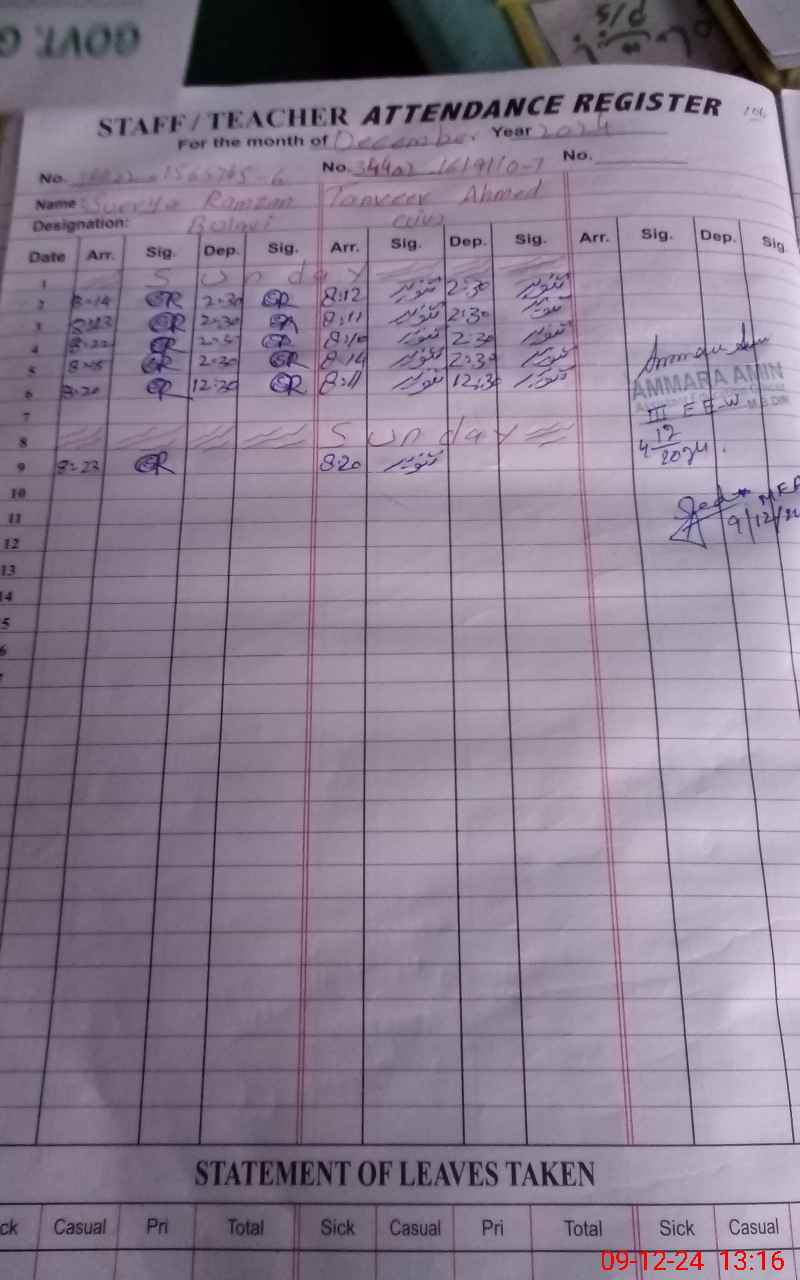 GOVT. G
S/d
STAFF / TEACHER ATTENDANCE REGISTER
For the month of December Year 2024
No. No. No.
Name: Surrya Ramzan Tanveer Ahmed
Designation:
Date Arr. Sig. Dep. Sig. Arr. Sig. Dep. Sig. Arr. Sig. Dep. Sig
1 Sunday
2 8:14 GR 2:30 GR 8:12 تنویر 2:30 تنویر
3 8:13 GR 2:30 GR 8:11 تنویر 2:30 تنویر
4 8:22 GR GR 8:10 تنویر 2:30 تنویر
5 GR 2:30 GR 8:14 تنویر 2:30 تنویر
6 8:20 GR 12:30 GR 8:11 تنویر 12:30 تنویر
AMMARA AMIN
7
8 Sunday
12
4 2024
9 8:23 GR 8:20 تنویر
10
11
9/12/24
12
13
14
5
6
7
STATEMENT OF LEAVES TAKEN
ck Casual Pri Total Sick Casual Pri Total Sick Casual
09-12-24 13:16